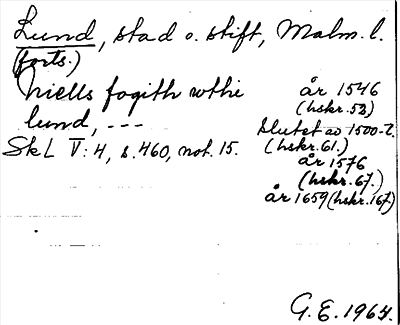 Lund, stad o. stift, Malm. l.
(forts.)
niells fogith wthi
lund, ---
SkL V:4, s. 460, not. 15.
år 1546
(hskr. 52)
slutet av 1500-t.
(hskr. 61.)
år 1576
(hskr. 67.)
år 1659 (hskr. 167)
G.E. 1964.